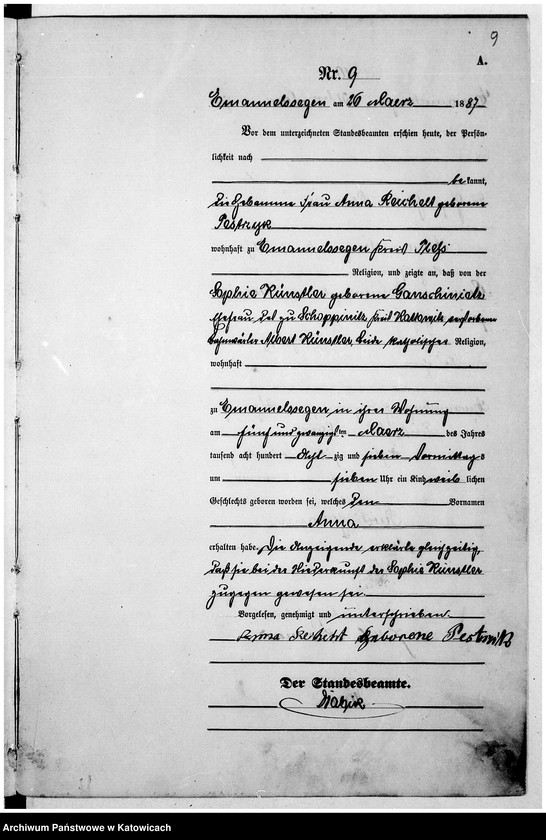 9
A.
Nr. 9
Emanuelssegen am 26 Maerz 1887
Vor dem unterzeichneten Standesbeamten erschien heute, der Persön-
lichkeit nach
be kannt,
die Hebamme Frau Anna Reichelt geborene
Pestrzyk
wohnhaft zu Emanuelssegen Kreis Pleß
Religion, und zeigte an, daß von der
Sophie Künstler geborene Ganschinietz
Ehefrau des zu Schoppinitz Kreis Kattowitz verstorbenen
Bahnwärter Albert Künstler, beide katholischer Religion,
wohnhaft
zu Emanuelssegen in ihrer Wohnung
am fünf und zwanzigsten Maerz des Jahres
tausend acht hundert Acht zig und sieben Vormittags
um sieben Uhr ein Kind weib lichen
Geschlechts geboren worden sei, welches den Vornamen
Anna
erhalten habe. Die Anzeigende erklärte gleichzeitig,
daß sie bei der Niederkunft der Sophie Künstler
zugegen gewesen sei.
Vorgelesen, genehmigt und unterschrieben
Anna geborene
Der Standesbeamte.
Archiwum Państwowe w Katowicach